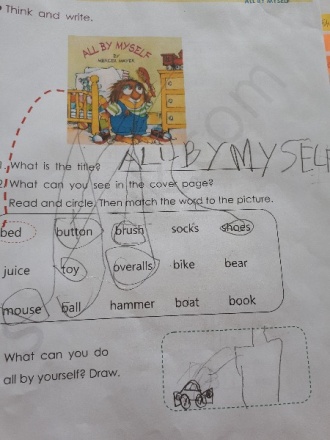 ALL BY MYSELF
Think and write.
ALL BY MYSELF
BY MERCER MAYER
1. What is the title? ALL BY MYSELF
2. What can you see in the cover page?
Read and circle. Then match the word to the picture.
bed button brush socks shoes
juice toy overalls bike bear
mouse ball hammer boat book
What can you do
all by yourself? Draw.